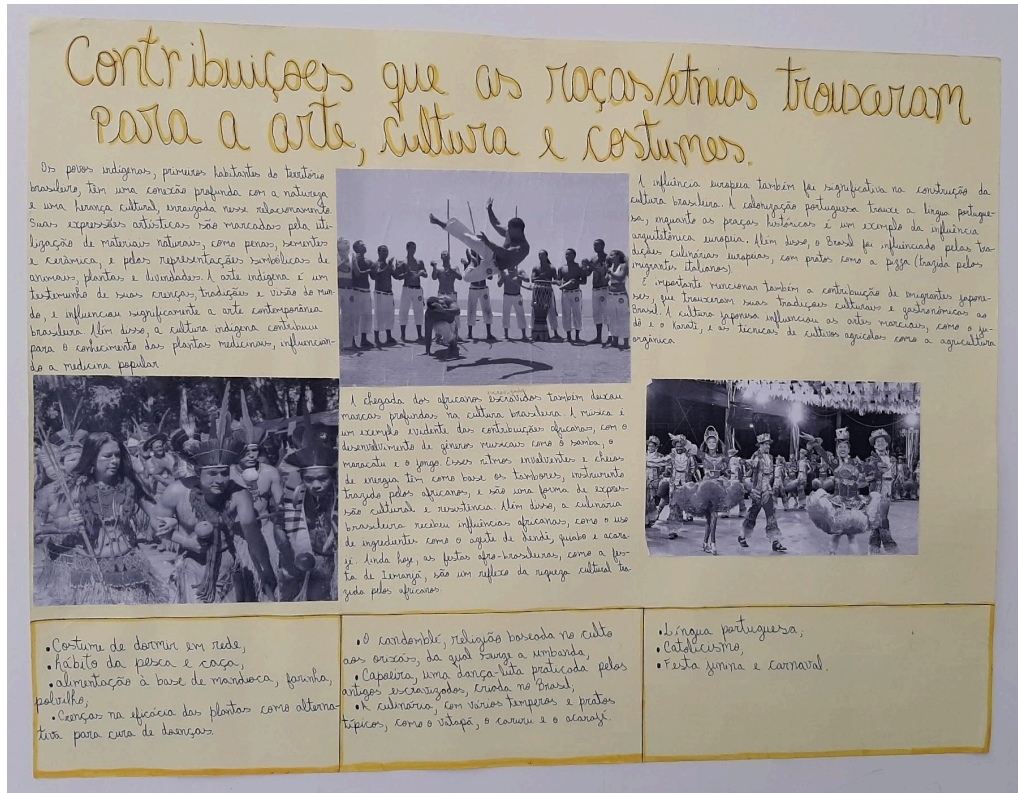 Contribuiçoes que as raças/etnias trouxeram
para a arte, cultura e costumes.
Os povos indígenas, primeiros habitantes do território
brasileiro, têm uma conexão profunda com a natureza
e uma herança cultural, enraizada nesse relacionamento.
Suas expressões artísticas são marcadas pela uti-
lização de materiais naturais, como penas, sementes
e cerâmica, e pelas representações simbólicas de
animais, plantas e divindades. A arte indígena é um
testemunho de suas crenças, tradições e visão do mun-
do, e influenciou significamente a arte contemporânea
brasileira. Além disso, a cultura indígena contribuiu
para o conhecimento das plantas medicinais, influencian-
do a medicina popular
A chegada dos africanos escravidos também deixou
marcas profundas na cultura brasileira. A música é
um exemplo evidente das contribuições africanas, com o
desenvolvimento de gêneros musicais como o samba, o
maracatu e o jongo. Esses ritmos envolventes e cheios
de energia têm como base os tambores, instrumento
trazido pelos africanos, e são uma forma de expres-
são cultural e resistência. Além disso, a culinária
brasileira recebeu influências africanas, como o uso
de ingredientes como o azeite de dendê, quiabo e acara-
jé. Ainda hoje, as festas afro-brasileiras, como a fes-
ta de Iemanjá, são um reflexo da riqueza cultural tra-
zida pelos africanos.
A influência europeia também foi significativa na construção da
cultura brasileira. A colonização portuguesa trouxe a língua portugue-
sa, enquanto as praças históricas é um exemplo da influência
arquitetônica europeia. Além disso, o Brasil foi influenciado pelas tra-
dições culinárias europeias, com pratos como a pizza (trazida pelos
imigrantes italianos).
É importante mencionar também a contribuição de emigrantes japone-
ses, que trouxeram suas tradições culturais e gastronômicas ao
Brasil. A cultura japonesa influenciou as artes marciais, como o ju-
dô e o karatê, e as técnicas de cultivos agrícolas como a agricultura
orgânica
• Costume de dormir em rede,
• hábito da pesca e caça,
• alimentação à base de mandioca, farinha,
polvilho;
• Crenças na eficácia das plantas como alterna-
tiva para cura de doenças.
• O candomblé, religião baseada no culto
aos orixás, da qual surge a umbanda,
• Capoeira, uma dança-luta praticada pelos
antigos escravizados, criada no Brasil,
• A culinária, com vários temperos e pratos
típicos, como o vatapá, o caruru e o acarajé.
• Língua portuguesa;
• Catolicismo,
• Festa junina e carnaval.